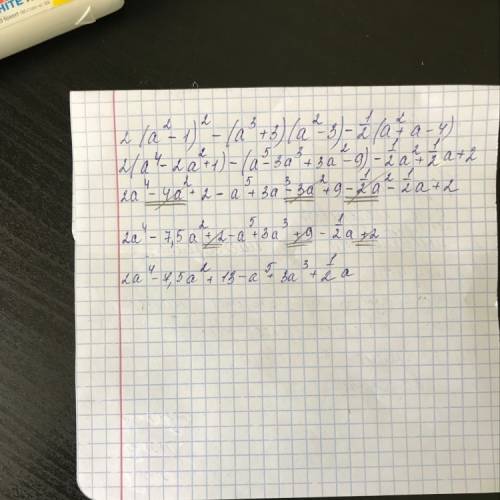 HITE
2(a² - 1)² - (a³ + 3)(a² - 3) - 1/2(a² + a - 4)
2(a⁴ - 2a² + 1) - (a⁵ - 3a³ + 3a² - 9) - 1/2a² + 1/2a + 2
2a⁴ - 4a² + 2 - a⁵ + 3a³ - 3a² + 9 - 1/2a² - 1/2a + 2
2a⁴ - 7,5a² + 2 - a⁵ + 3a³ + 9 - 1/2a + 2
2a⁴ - 7,5a² + 13 - a⁵ + 3a³ + 1/2a